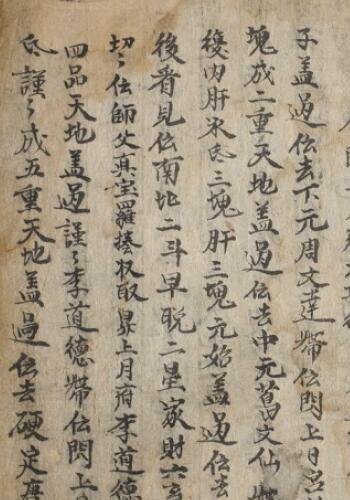 子盖过伝去下元周文達帶伝閃上日宮
塊成二重天地盖過伝去中元葛文仙
後内肝米氏三塊肝三塊元始盖過伝去
後看見伝南北二斗早晩二星家財六
切〻伝師父真宝羅捧収取昇上月府李道德
四品天地盖過謹〻李道德帶伝閃上日
氏謹〻成五重天地盖過伝去硬定